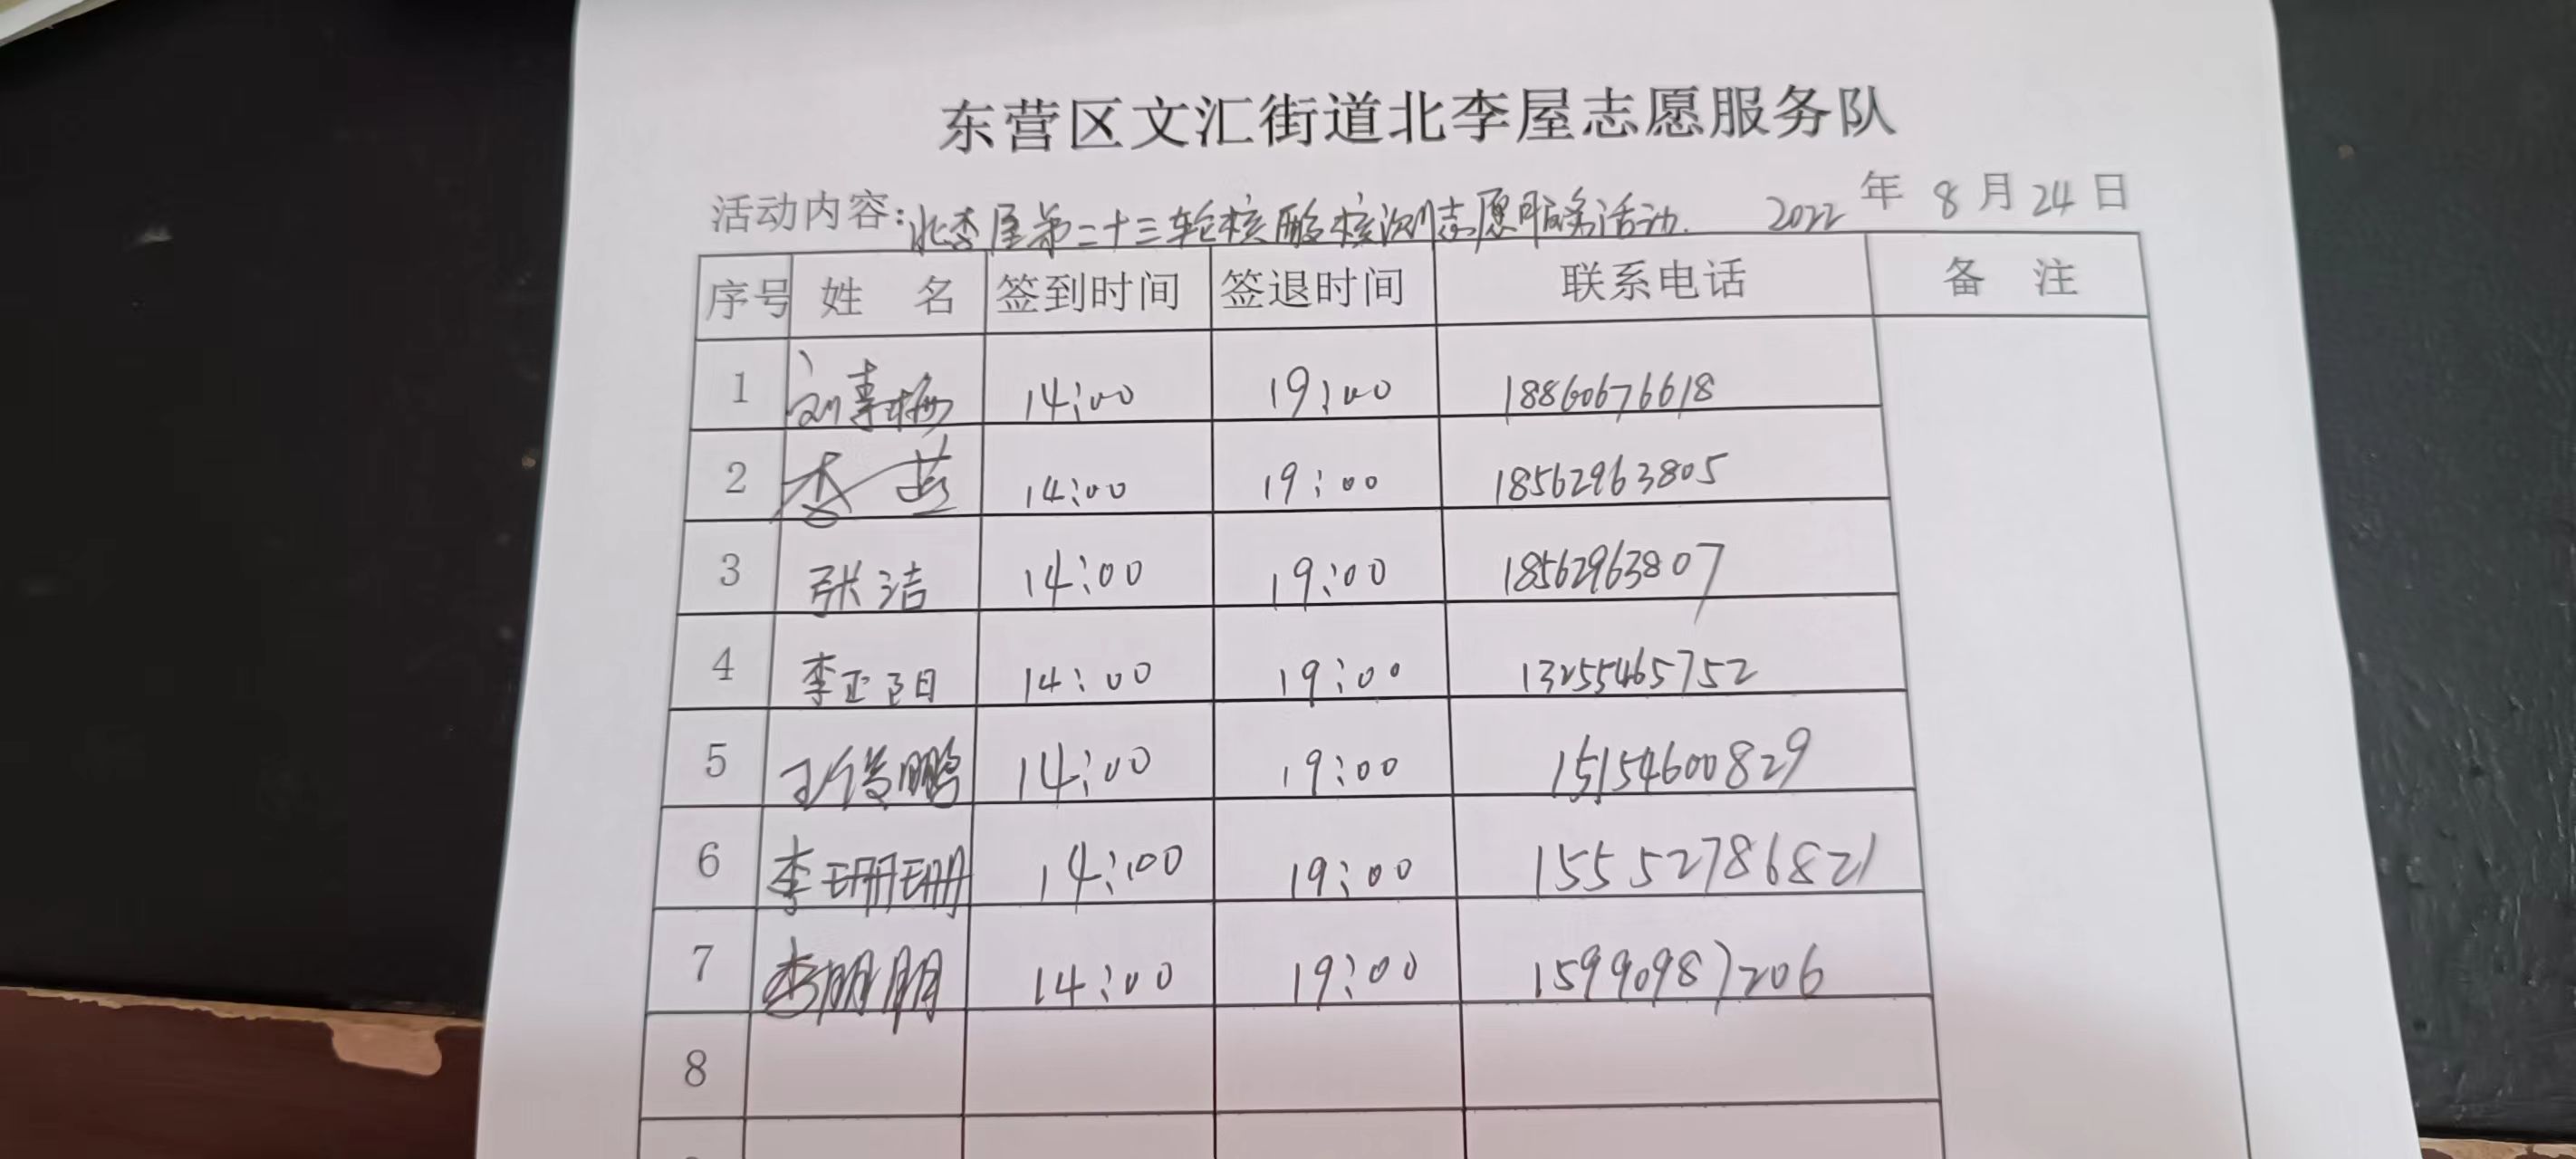 东营区文汇街道北李屋志愿服务队
活动内容:北李屋第二十三轮核酸检测志愿服务活动. 2022年8月24日
序号 姓名 签到时间 签退时间 联系电话 备注
1 刘春梅 14:00 19:00 18860676618
2 李燕 14:00 19:00 18562963805
3 张洁 14:00 19:00 18562963807
4 李正阳 14:00 19:00 13255465752
5 王俊鹏 14:00 19:00 15154600829
6 李珊珊 14:00 19:00 15552786821
7 李朋朋 14:00 19:00 15990987206
8